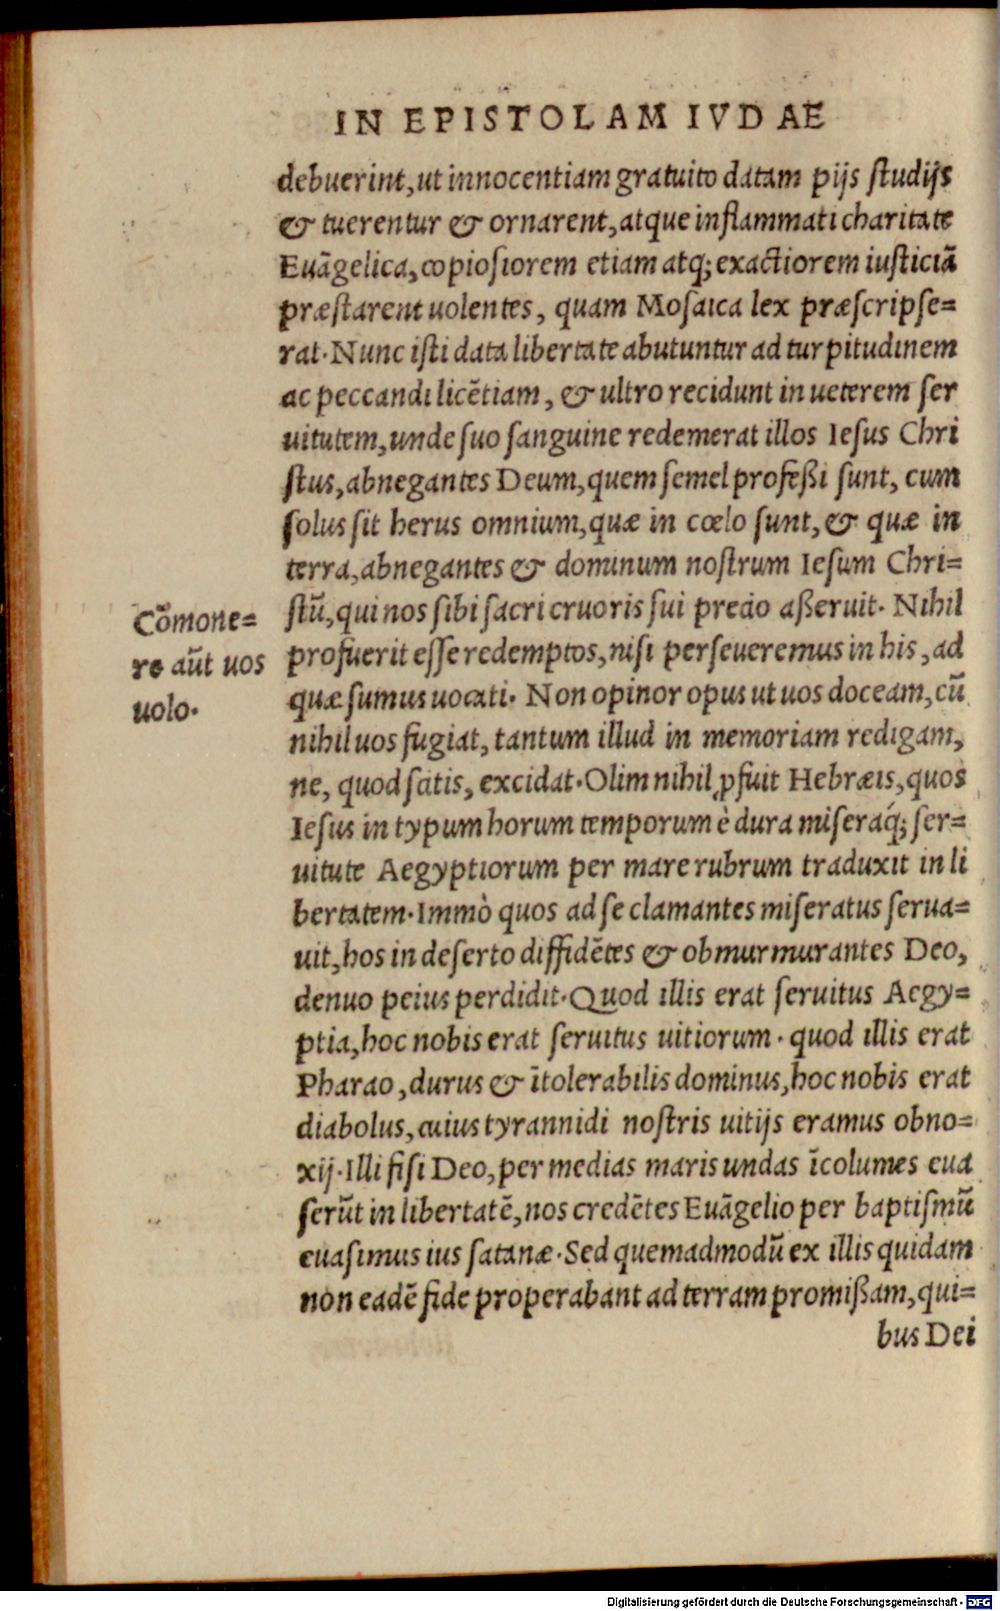 IN EPISTOLAM IVDAE
debuerint, ut innocentiam gratuito datam pijs studijs
& tuerentur & ornarent, atque inflammati charitate
Euãgelica, copiosiorem etiam atq; exactiorem iusticiã
præstarent uolentes, quam Mosaica lex præscripse=
rat. Nunc isti data libertate abutuntur ad turpitudinem
ac peccandi licẽtiam, & ultro recidunt in ueterem ser
uitutem, unde suo sanguine redemerat illos Iesus Chri
stus, abnegantes Deum, quem semel profeßi sunt, cum
solus sit herus omnium, quæ in cœlo sunt, & quæ in
terra, abnegantes & dominum nostrum Iesum Chri=
stũ, qui nos sibi sacri cruoris sui precio aßeruit. Nihil
Cõmone=
re aũt uos
uolo.
profuerit esse redemptos, nisi perseueremus in his, ad
quæ sumus uocati. Non opinor opus ut uos doceam, cũ
nihil uos fugiat, tantum illud in memoriam redigam,
ne, quod scitis, excidat. Olim nihil ꝓfuit Hebræis, quos
Iesus in typum horum temporum è dura miseraq́; ser=
uitute Aegyptiorum per mare rubrum traduxit in li
bertatem. Immò quos ad se clamantes miseratus serua=
uit, hos in deserto diffidẽtes & obmurmurantes Deo,
denuo peius perdidit. Quod illis erat seruitus Aegy=
ptia, hoc nobis erat seruitus uitiorum. quod illis erat
Pharao, durus & ĩtolerabilis dominus, hoc nobis erat
diabolus, cuius tyrannidi nostris uitijs eramus obno=
xij. Illi fisi Deo, per medias maris undas ĩcolumes eua
serũt in libertatẽ, nos credẽtes Euãgelio per baptismũ
euasimus ius satanæ. Sed quemadmodũ ex illis quidam
non eadẽ fide properabant ad terram promißam, qui=
bus Dei
Digitalisierung gefördert durch die Deutsche Forschungsgemeinschaft - DFG